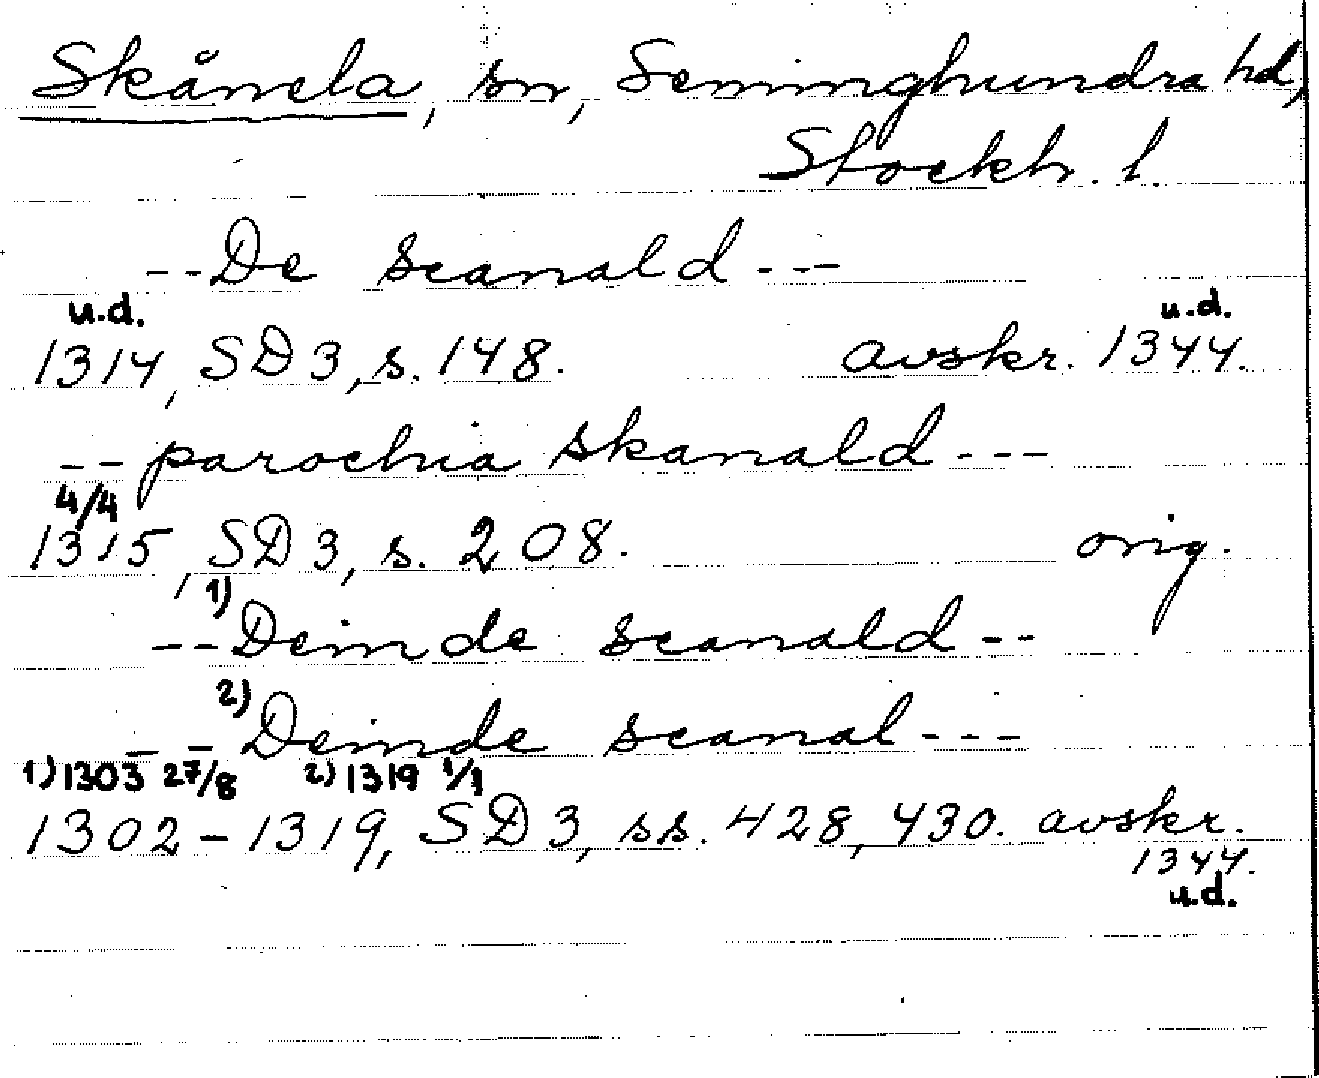 Skånela, sn, Seminghundra hd,
Stockh. l.
--De scanald---
u.d. u.d.
1314, SD 3, s. 148. avskr. 1344.
--parochia skanald---
4/4
1315, SD 3, s. 208. orig.
--1) Deinde scanald--
--2) Deinde scanal---
1) 1303 27/8 2) 1319 1/1
1302-1319, SD 3, ss. 428, 430. avskr.
1344.
u.d.